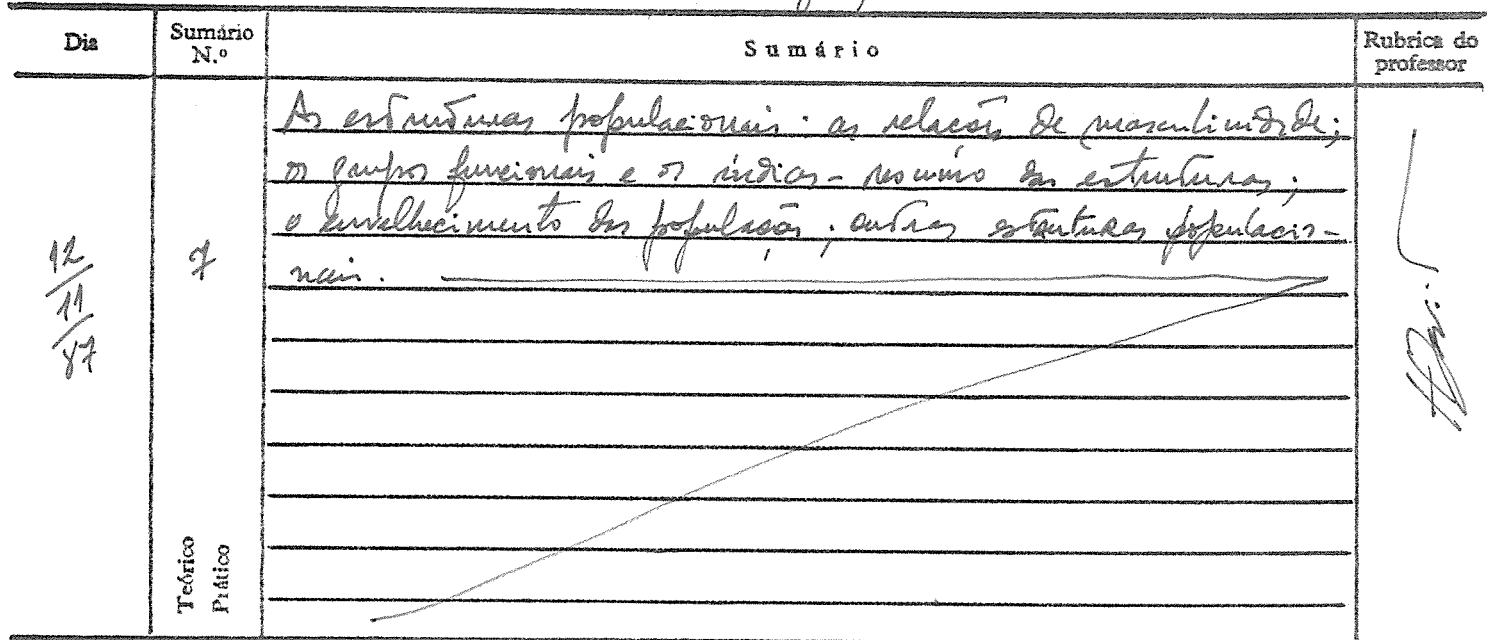 Dia
Sumário N.º
Sumário
Rubrica do professor
12/11/87
7
As estruturas populacionais: as relações de masculinidade;
os grupos funcionais e os índices-resumo das estruturas;
o envelhecimento das populações; outras estruturas populacio-
nais.
Teórico
Prático